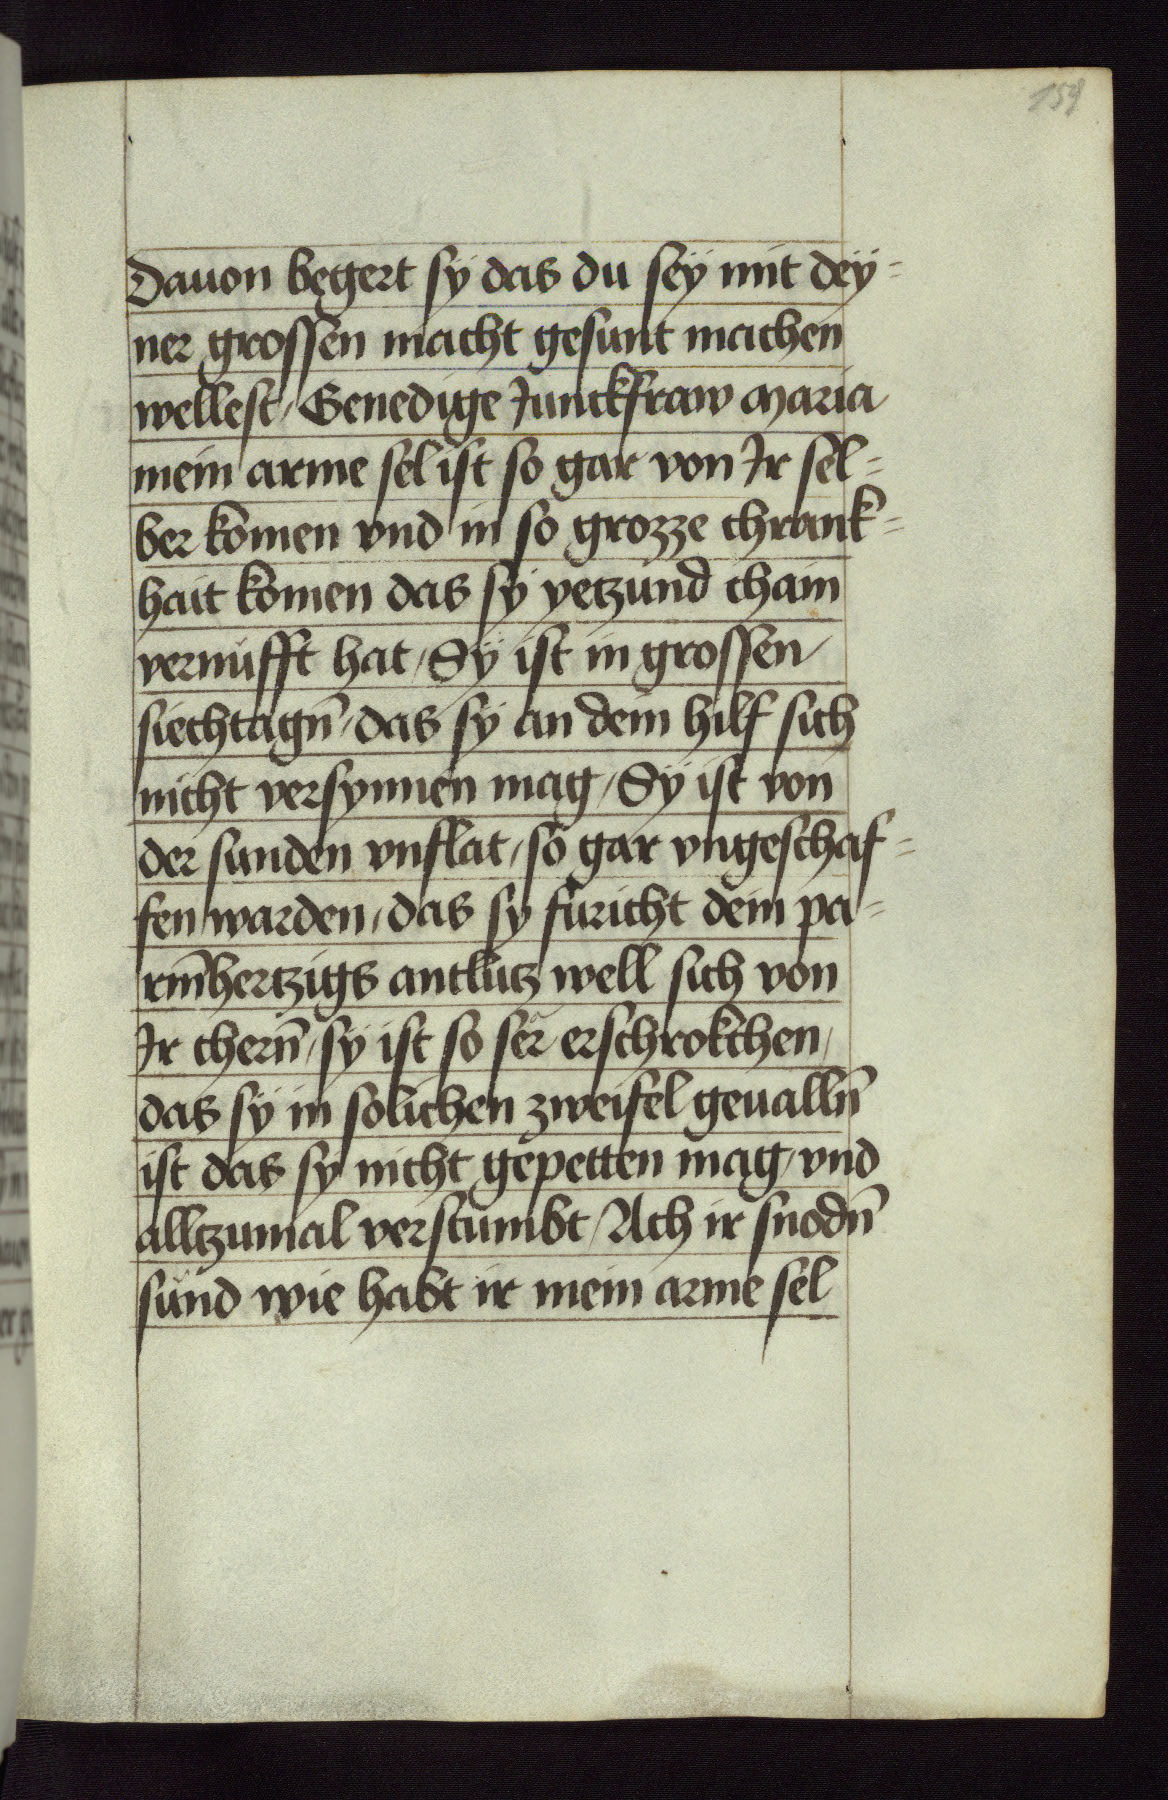 159
Dauon begert sÿ das du seÿ mit deÿ-
ner grossen macht gesunt machen
wellest / Genedige Junckfraw Maria
mein arme sel ist so gar von Ir sel-
ber komen vnd in so grozze chrank-
hait komen das sÿ yetzund chain
vernufft hat / Sÿ ist in grossen /
siechtagn̄ / das sÿ an dein hilf sich
nicht versynnen mag / Sÿ ist von
der sunden vnflat / so gar vngeschaf-
fen warden / das sy füricht dein pa-
rm̄hertzigs antlütz well sich von
Ir chern̄ / sÿ ist so ser erschrokchen /
das sÿ in solichen zweifel geualln̄
ist das sy nicht gepetten mag / vnd
alltzumal verstumbt / Ach ir snodn̄
sünd wie habt ir mein arme sel